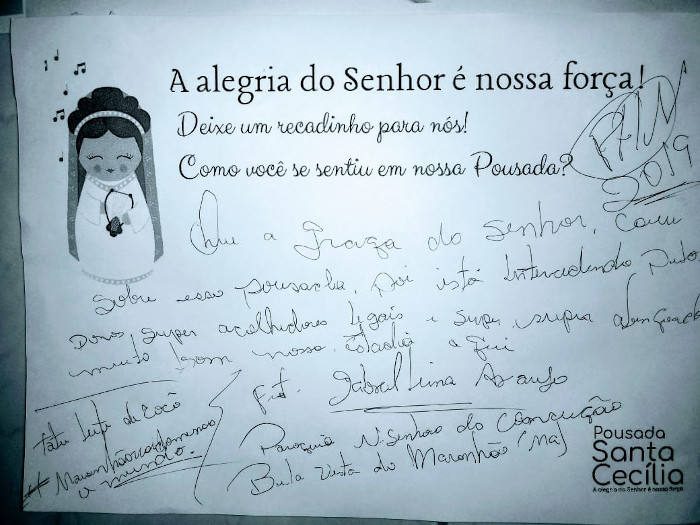 A alegria do Senhor é nossa força!
Deixe um recadinho para nós!
Como você se sentiu em nossa Pousada?
2019
Que a Graça do Senhor,
Sobre essa pousada, está Intercedendo
Donos, super acolhedores legais e super, supra
muito bom nossa Estadia a
Gabriel Lima Araujo
Paroquia N. Senhora do Conceução
Bela Vista do Maranhão (MA)
Leite de Cocô
# Maranhão
o mundo.
Pousada
Santa
Cecília
A alegria do Senhor é nossa força